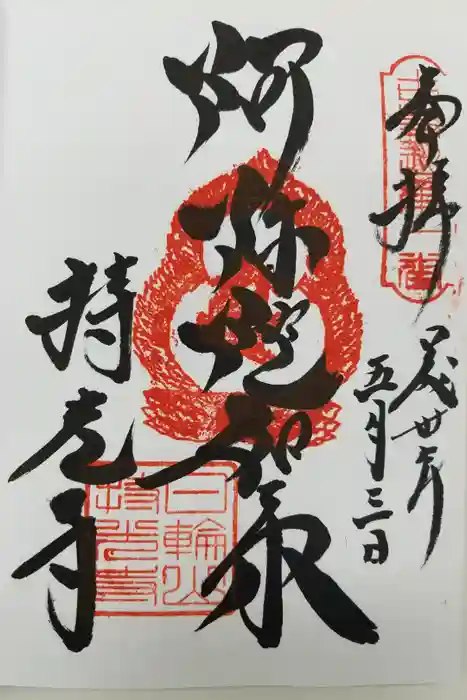 奉拝
平成卅年
五月三日
阿弥陀如来
持光寺
日輪山
持光寺